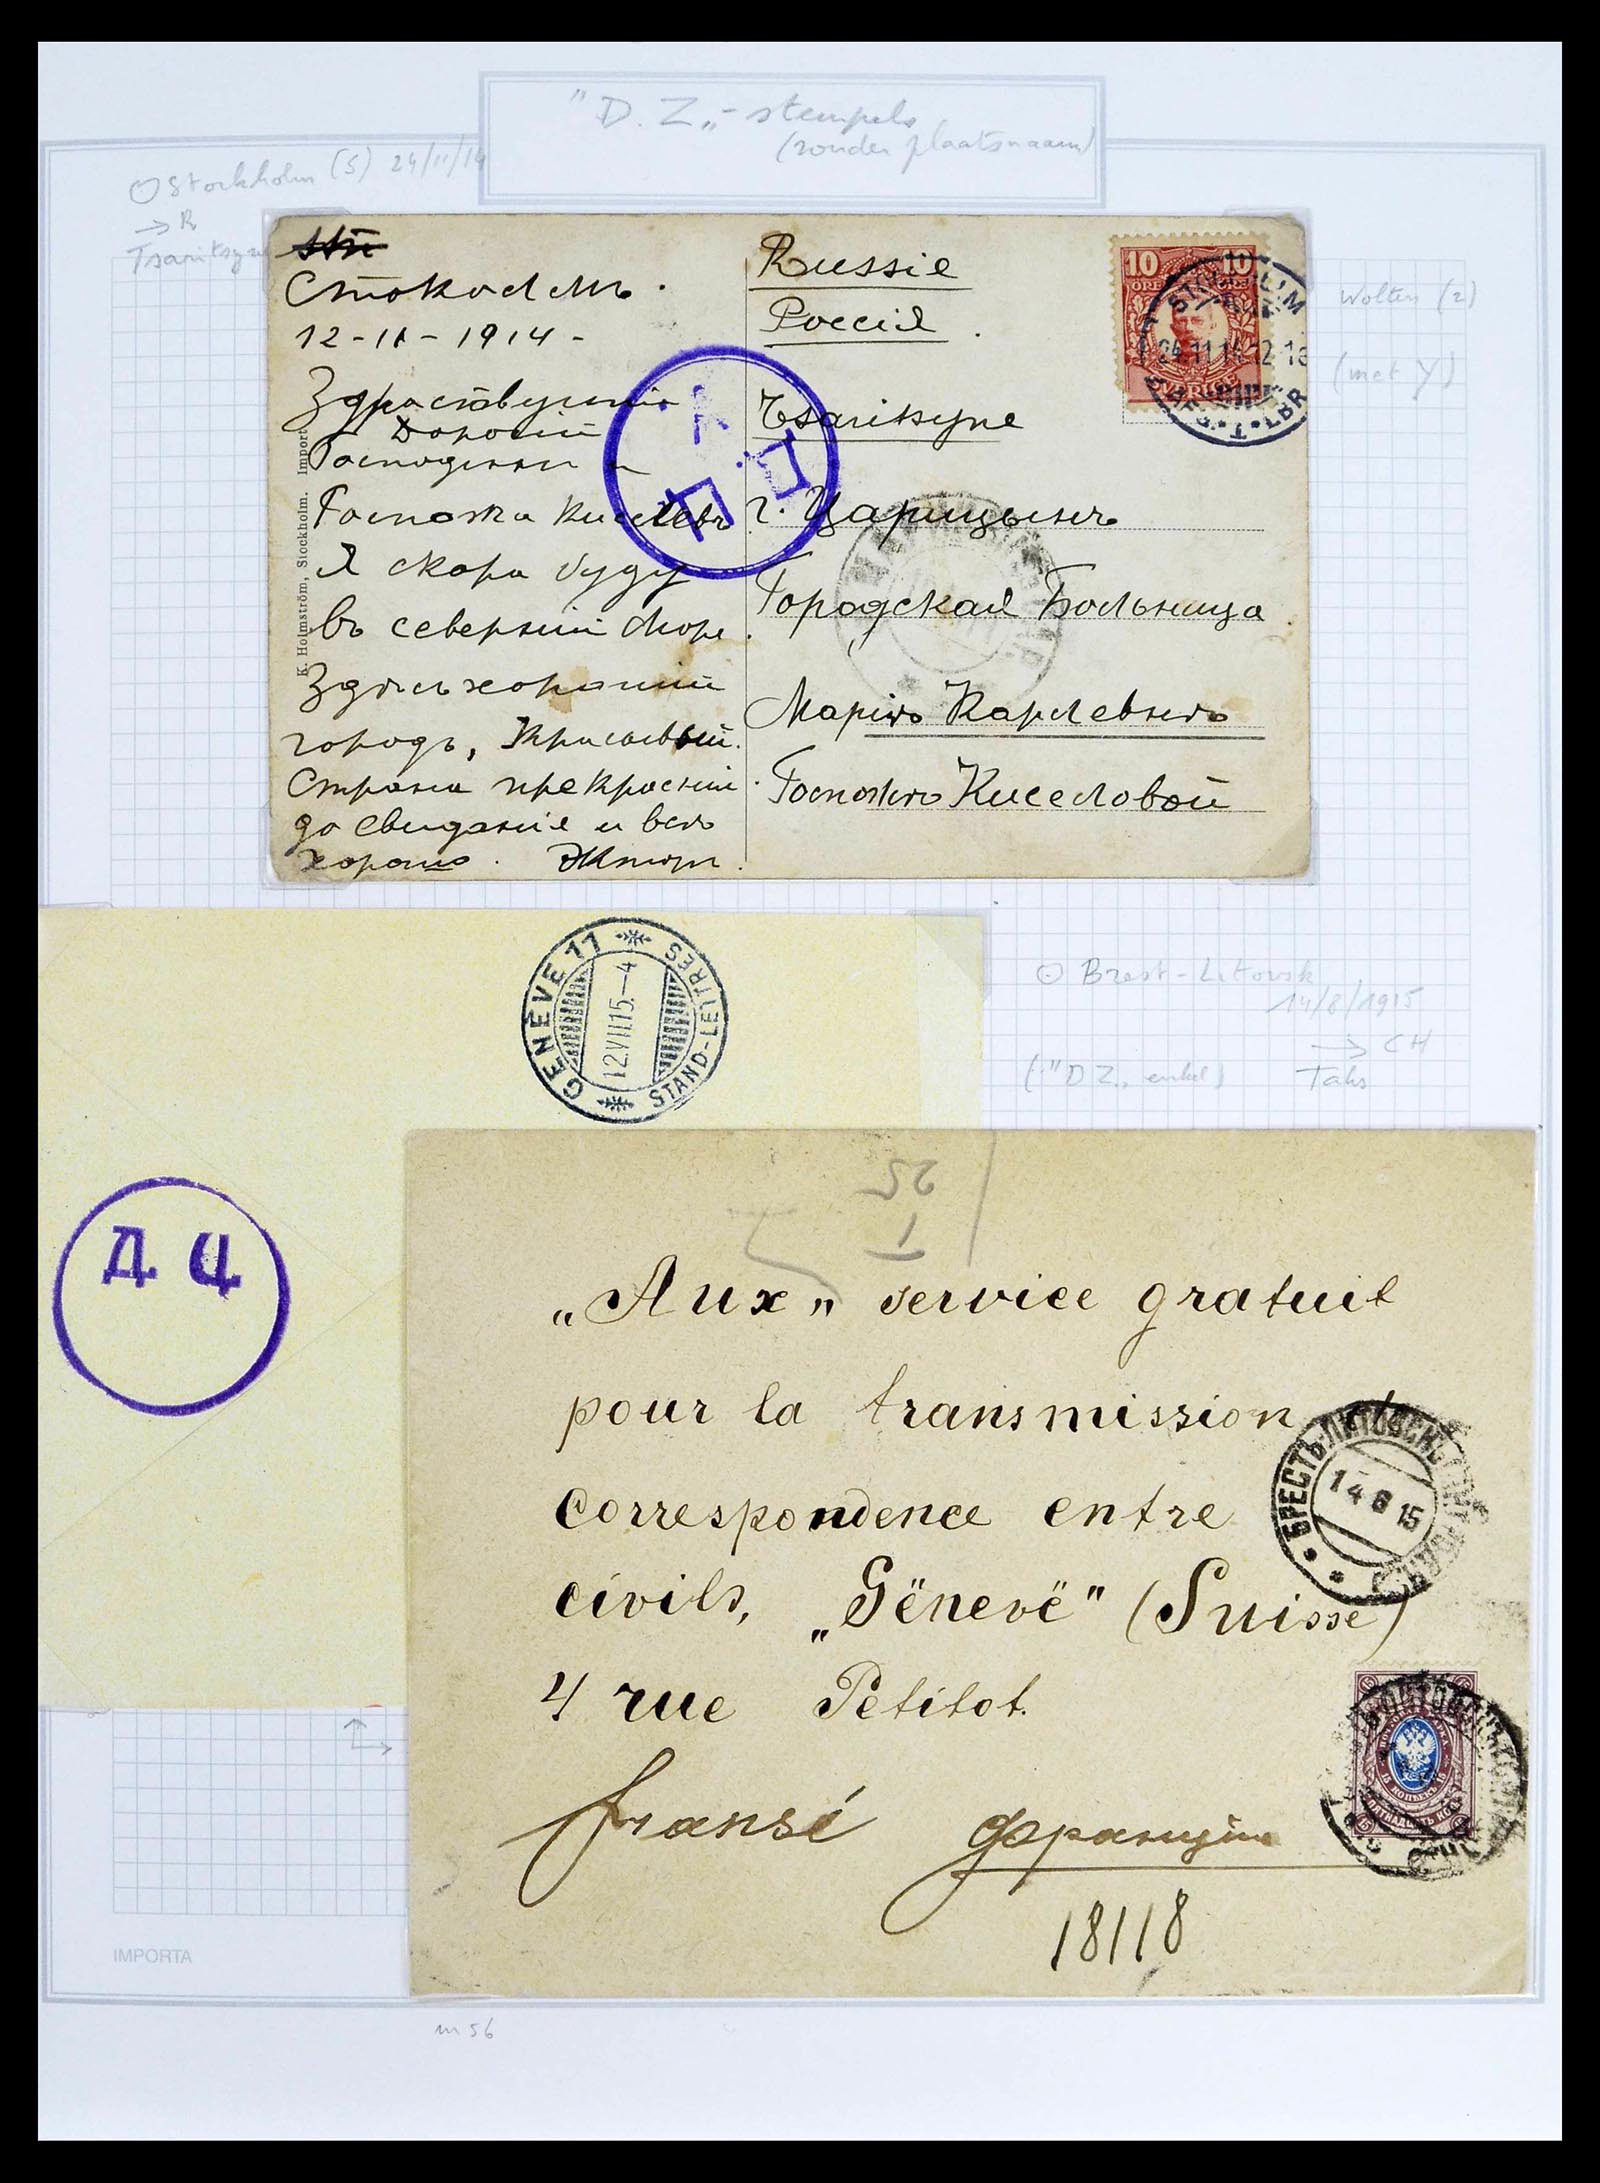 "D.Z."-stempels
(zonder plaatsnaam)
Stockholm (S) 24/11/14
→ R
Wolten (2)
(met Y)
Стоколмъ.
12-11-1914-
Здраствуйти
Дорогій
Господинъ и
Госпожа Киселевъ
Я скора буду
въ северний море.
Здѣсь хороший
городъ, Красивый.
Страна прекрасний
до свиданія и всѣ
хорошо.
K. Holmström, Stockholm. Import
Russie
Россія.
Tsaritsyne
г. Царицынъ
Городская Больница
Маріѣ Карлевнѣ
Госпожѣ Киселовой
10 10
SVERIGE
24.11.14
GENÈVE 11
12.VIII.15.—4
STAND-LETTRES
Brest-Litovsk
14/8/1915
→ CH
("DZ" enkel)
Д Ц
T
25
„Aux„ service gratuit
pour la transmission
correspondence entre
civils, „Gënevë" (Suisse)
4 rue Petitot.
fransé
18118
БРЕСТЪ-ЛИТОВСКЪ
14 8 15
IMPORTA
m 56